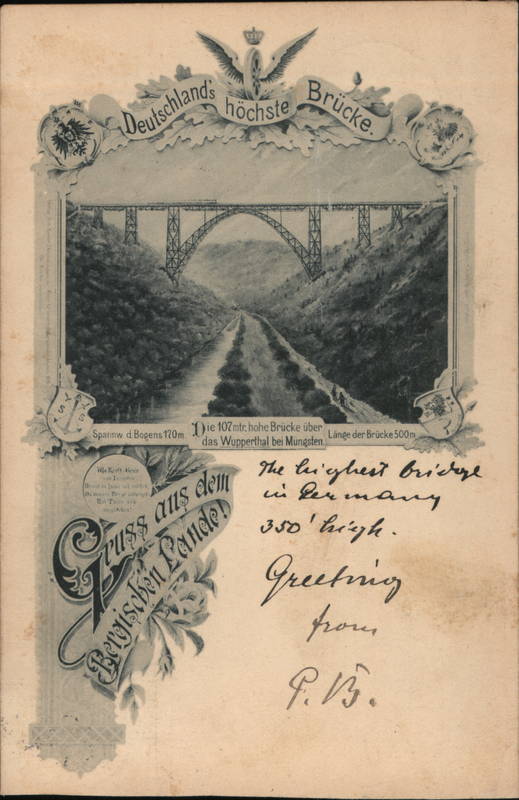 Deutschland's höchste Brücke.
Spannw. d. Bogens 170 m.
Die 107 mtr. hohe Brücke über
das Wupperthal bei Müngsten.
Länge der Brücke 500 m
Gruss aus dem
Bergischen Lande!
The highest bridge
in Germany
350' high.
Greeting
from
P. B.